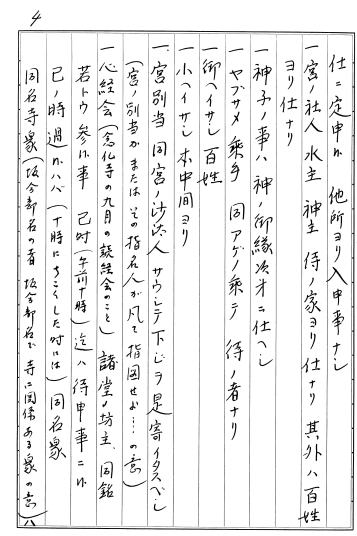 4
仕ニ定申候 他所ヨリ入申事ナシ
一宮ノ社人 水主 神主 侍ノ家ヨリ仕ナリ 其外ハ百姓
ヨリ仕ナリ
一神子ノ事ハ 神ノ御縁次才ニ仕ヘシ
一ヤブサメ 乗手 同アゲノ乗テ 侍ノ者ナリ
一御ヘイサシ 百姓
一小ヘイサシ 本中間ヨリ
一宮別当ノ同宮ノ沙汰人 サウシテ下シヲ是寄イタスベシ
(宮ノ別当がまたは その指名人が凡て指図せよ……の意)
一心経会(念仏寺の九月の読経会のこと) 諸堂ノ坊主、同銘
若トウ参候事 巳時(午前十時)迄ハ待申事ニ候
巳ノ時過候ハバ(十時にちこくした時には)同名衆
同名寺衆(坂合部名の者 坂合部名で 寺に関係ある衆の意)八